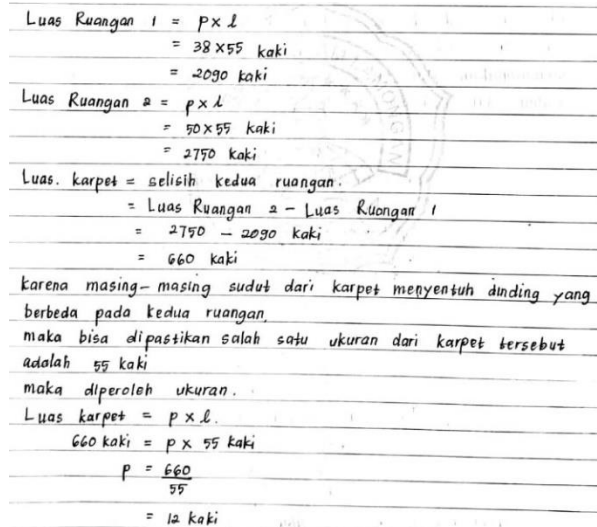 Luas Ruangan 1 = p x l
= 38 x 55 kaki
= 2090 kaki
Luas Ruangan 2 = p x l
= 50 x 55 kaki
= 2750 kaki
Luas. karpet = selisih kedua ruangan.
= Luas Ruangan 2 - Luas Ruangan 1
= 2750 - 2090 kaki
= 660 kaki
karena masing-masing sudut dari karpet menyentuh dinding yang
berbeda pada kedua ruangan,
maka bisa dipastikan salah satu ukuran dari karpet tersebut
adalah 55 kaki
maka diperoleh ukuran.
Luas karpet = p x l.
660 kaki = p x 55 kaki
p = 660
55
= 12 kaki